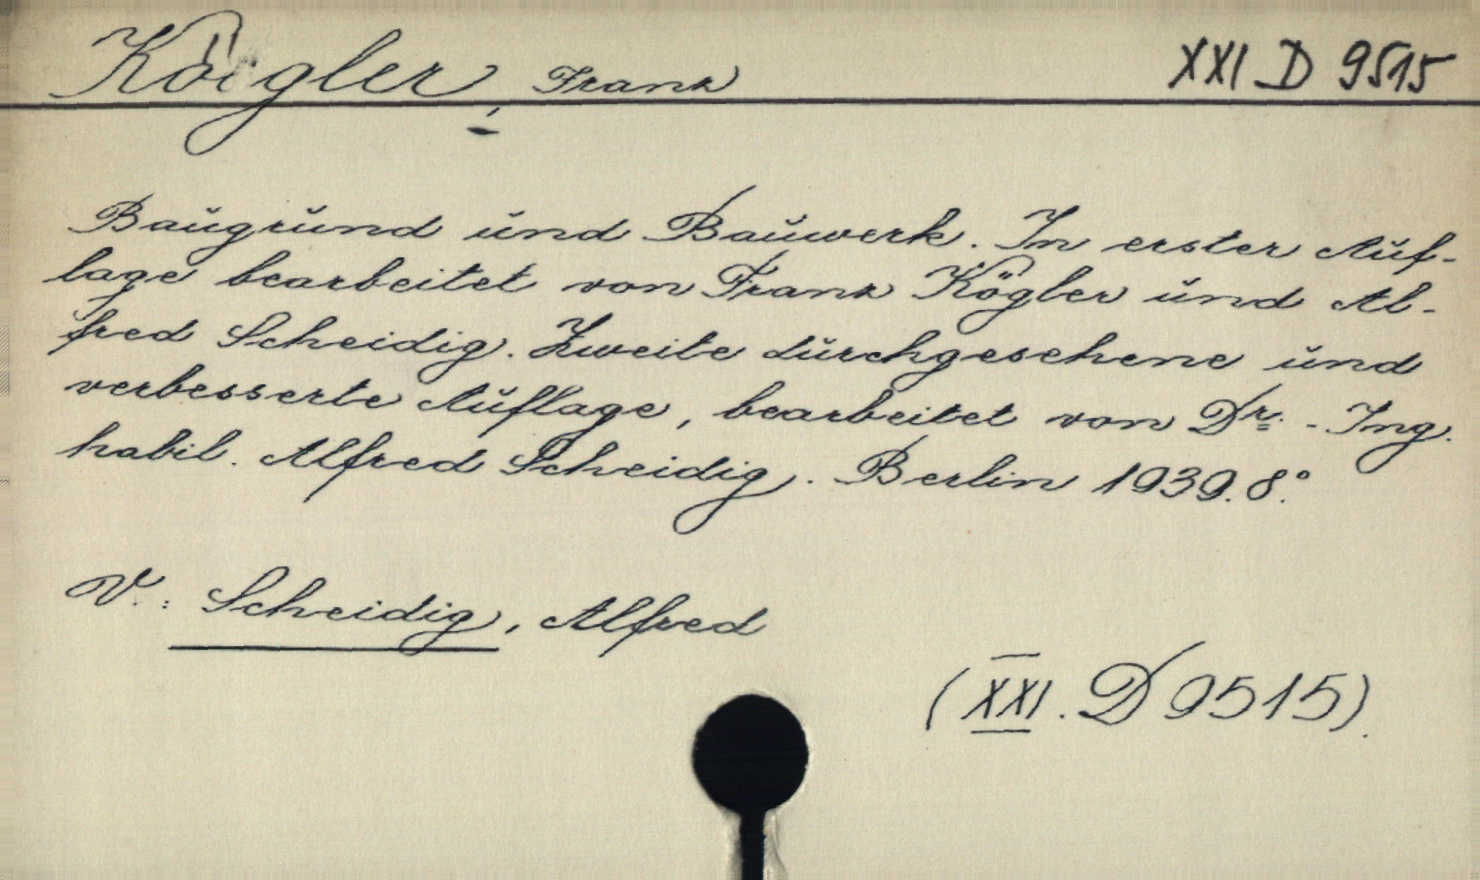 Kögler, Frank XXI D 9515
Baugrund und Bauwerk. In erster Auf-
lage bearbeitet von Frank Kögler und Al-
fred Scheidig. Zweite durchgesehene und
verbesserte Auflage, bearbeitet von Dr. - Ing.
habil. Alfred Scheidig. Berlin 1939. 8°.
V.: Scheidig, Alfred
(XXI. D 9515).